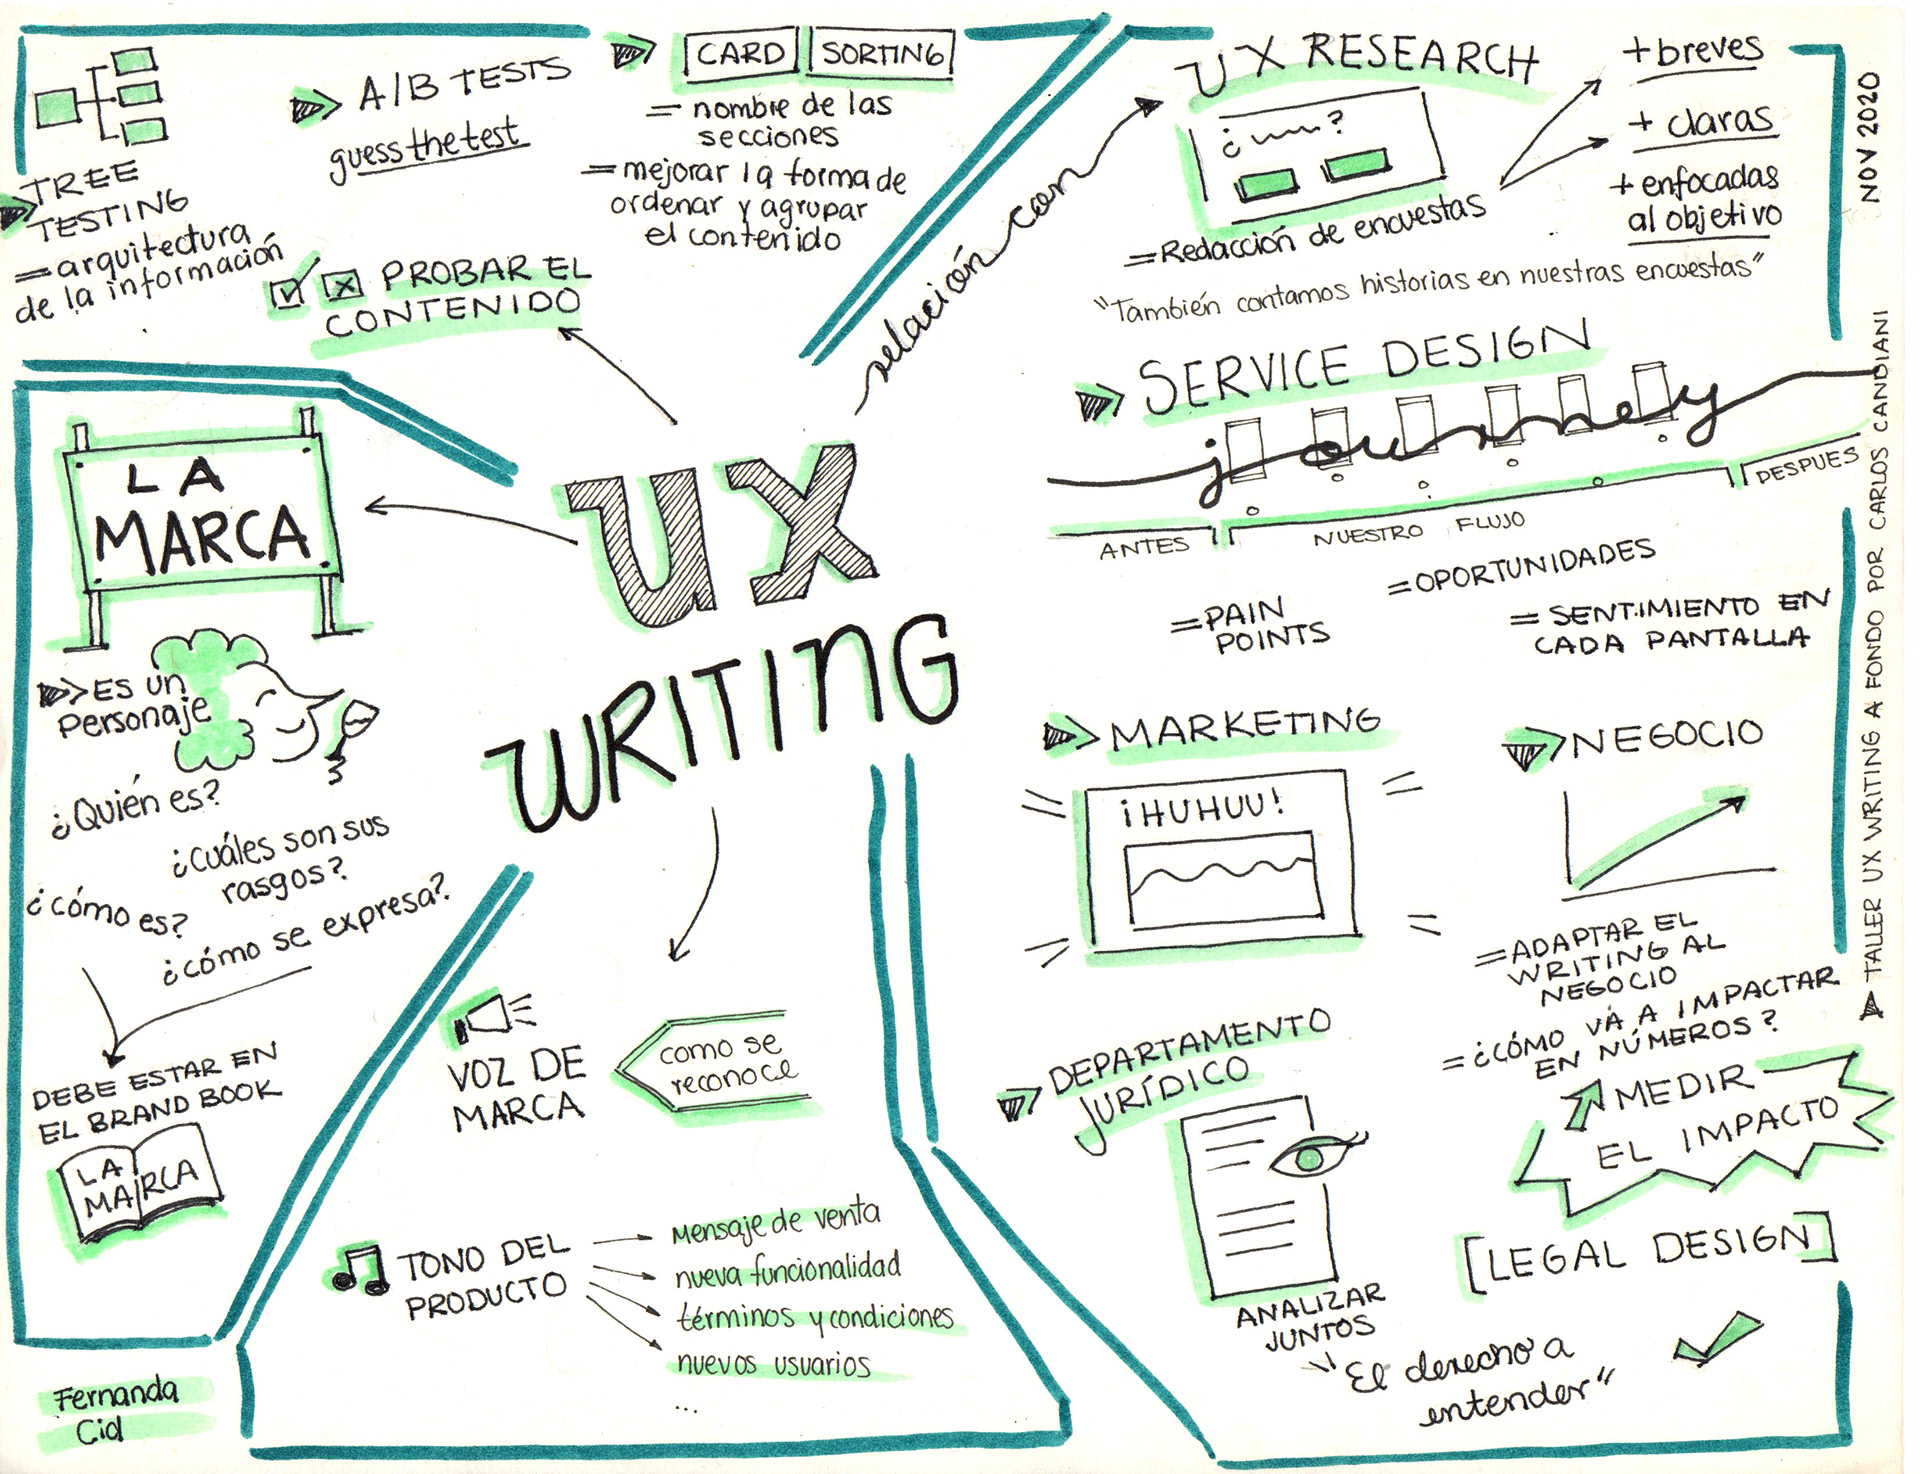 TREE
TESTING
= arquitectura
de la información
A/B TESTS
guess the test
CARD SORTING
= nombre de las
secciones
= mejorar la forma de
ordenar y agrupar
el contenido
PROBAR EL
CONTENIDO
UX
WRITING
LA
MARCA
ES UN
Personaje
¿Quién es?
¿Cuáles son sus
rasgos?
¿cómo es?
¿cómo se expresa?
DEBE ESTAR EN
EL BRAND BOOK
LA
MARCA
Fernanda
Cid
VOZ DE
MARCA
como se
reconoce
TONO DEL
PRODUCTO
Mensaje de venta
nueva funcionalidad
términos y condiciones
nuevos usuarios
...
relación con
UX RESEARCH
¿ ?
= Redacción de encuestas
+ breves
+ claras
+ enfocadas
al objetivo
"También contamos historias en nuestras encuestas"
SERVICE DESIGN
journey
ANTES
NUESTRO FLUJO
DESPUES
= PAIN
POINTS
= OPORTUNIDADES
= SENTIMIENTO EN
CADA PANTALLA
MARKETING
¡HUHUU!
NEGOCIO
= ADAPTAR EL
WRITING AL
NEGOCIO
= ¿CÓMO VÁ A IMPACTAR
EN NÚMEROS?
MEDIR
EL IMPACTO
DEPARTAMENTO
JURÍDICO
ANALIZAR
JUNTOS
[LEGAL DESIGN]
"El derecho a
entender"
TALLER UX WRITING A FONDO POR CARLOS CANDIANI
NOV 2020